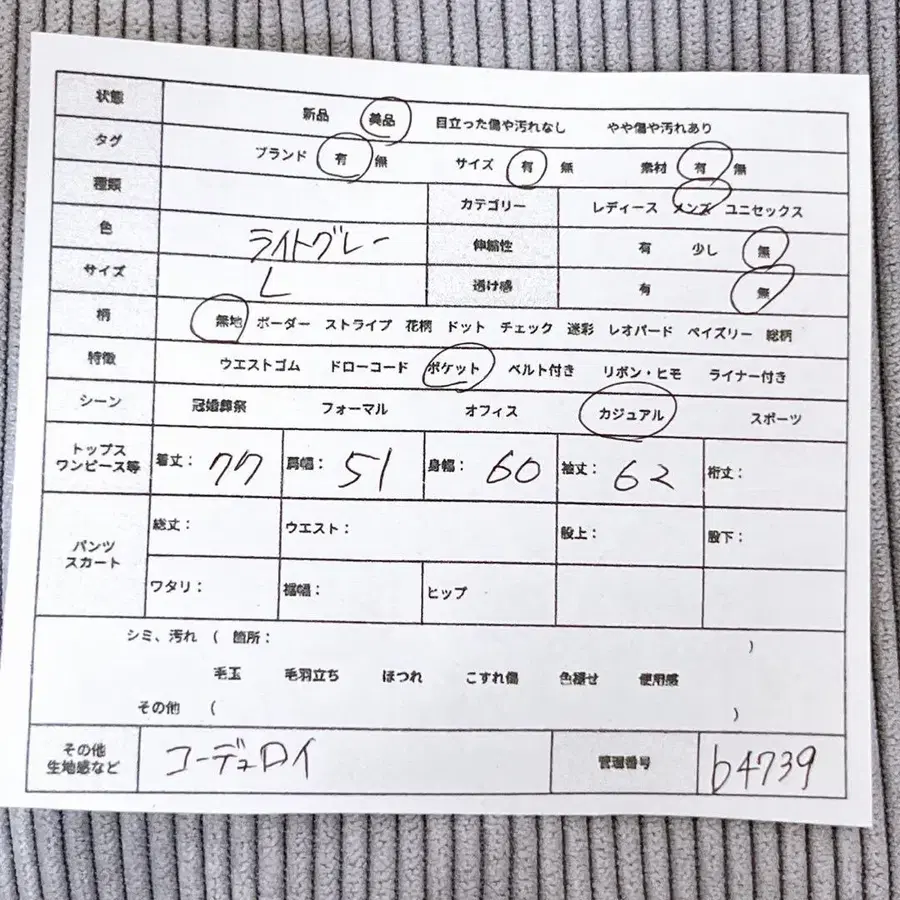 状態 新品 美品 目立った傷や汚れなし やや傷や汚れあり
タグ ブランド 有 無 サイズ 有 無 素材 有 無
種類 カテゴリー レディース メンズ ユニセックス
色 ライトグレー 伸縮性 有 少し 無
サイズ L 透け感 有 無
柄 無地 ボーダー ストライプ 花柄 ドット チェック 迷彩 レオパード ペイズリー 総柄
特徴 ウエストゴム ドローコード ポケット ベルト付き リボン・ヒモ ライナー付き
シーン 冠婚葬祭 フォーマル オフィス カジュアル スポーツ
トップス
ワンピース等 着丈: 77 肩幅: 51 身幅: 60 袖丈: 62 裄丈:
パンツ
スカート 総丈: ウエスト: 股上: 股下:
ワタリ: 裾幅: ヒップ
シミ、汚れ ( 箇所: )
毛玉 毛羽立ち ほつれ こすれ傷 色褪せ 使用感
その他 ( )
その他
生地感など コーデュロイ 管理番号 b4739